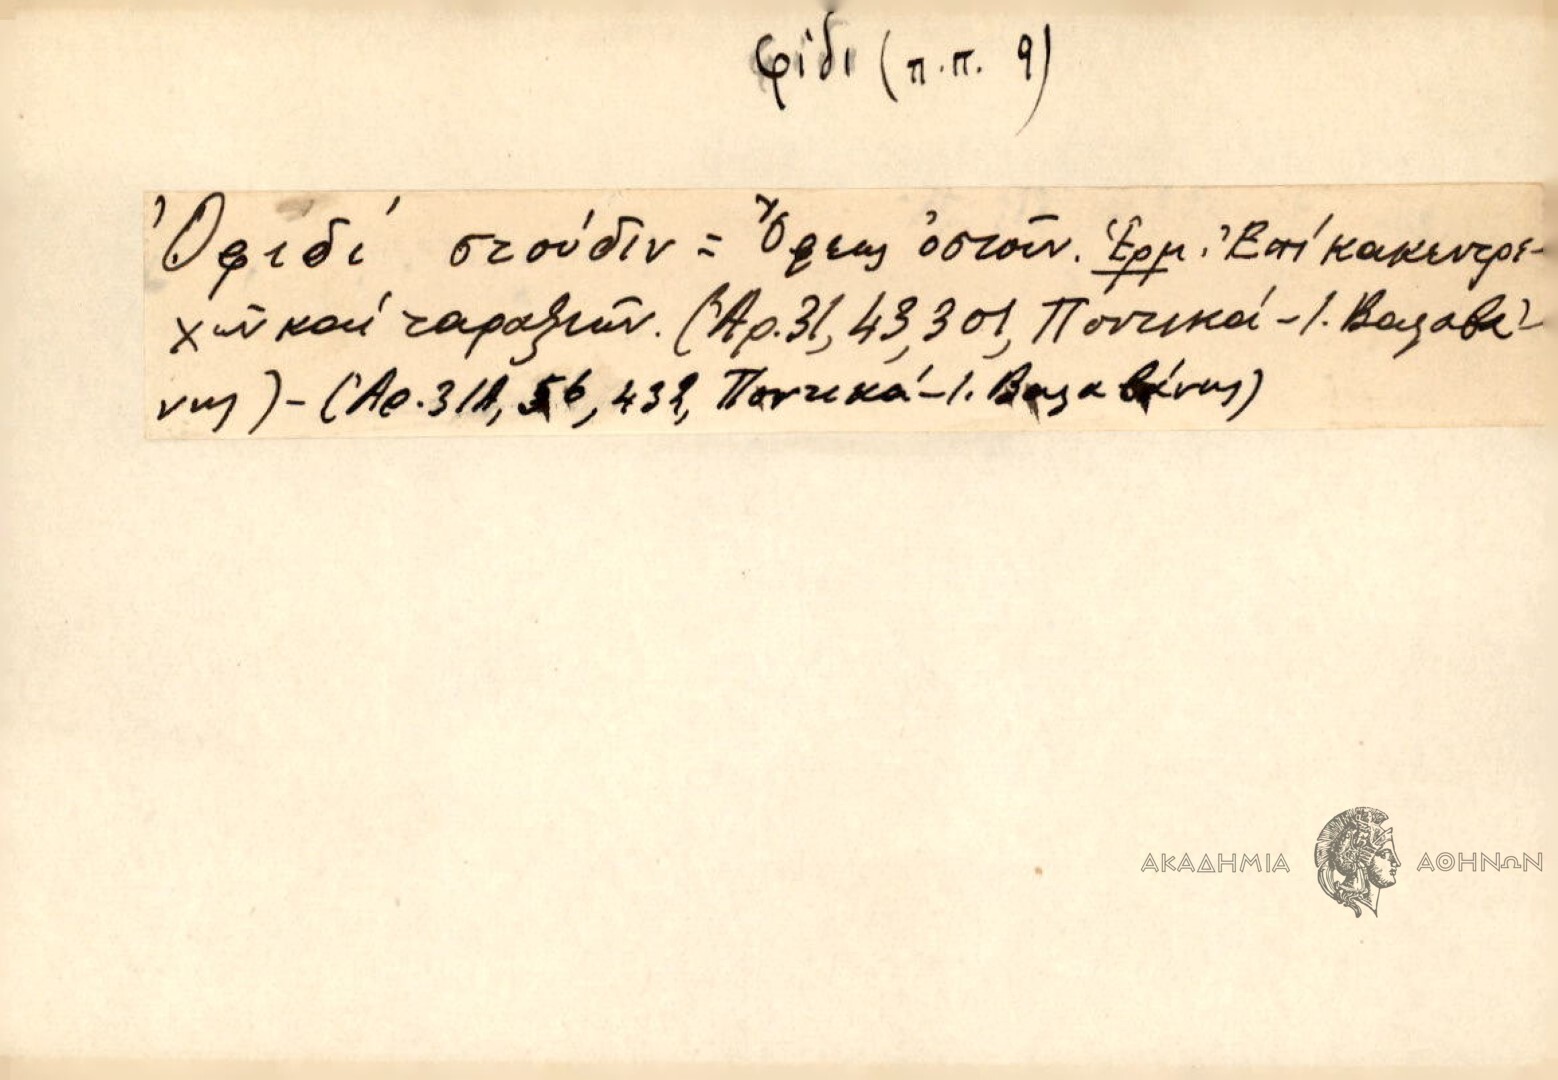 φίδι (π.π. 9)
Ὀφιδί στούδιν = Ὄφεως ὀστοῦν. Ἑρμ. Ἐπί κακεντρε-
χῶν καί ταραξιῶν. (Ἀρ. 31, 43, 301, Ποντικά - Ι. Βαλαβά-
νης) - (Ἀρ. 311, 56, 432, Ποντικά - Ι. Βαλαβάνης)
ΑΚΑΔΗΜΙΑ ΑΘΗΝΩΝ